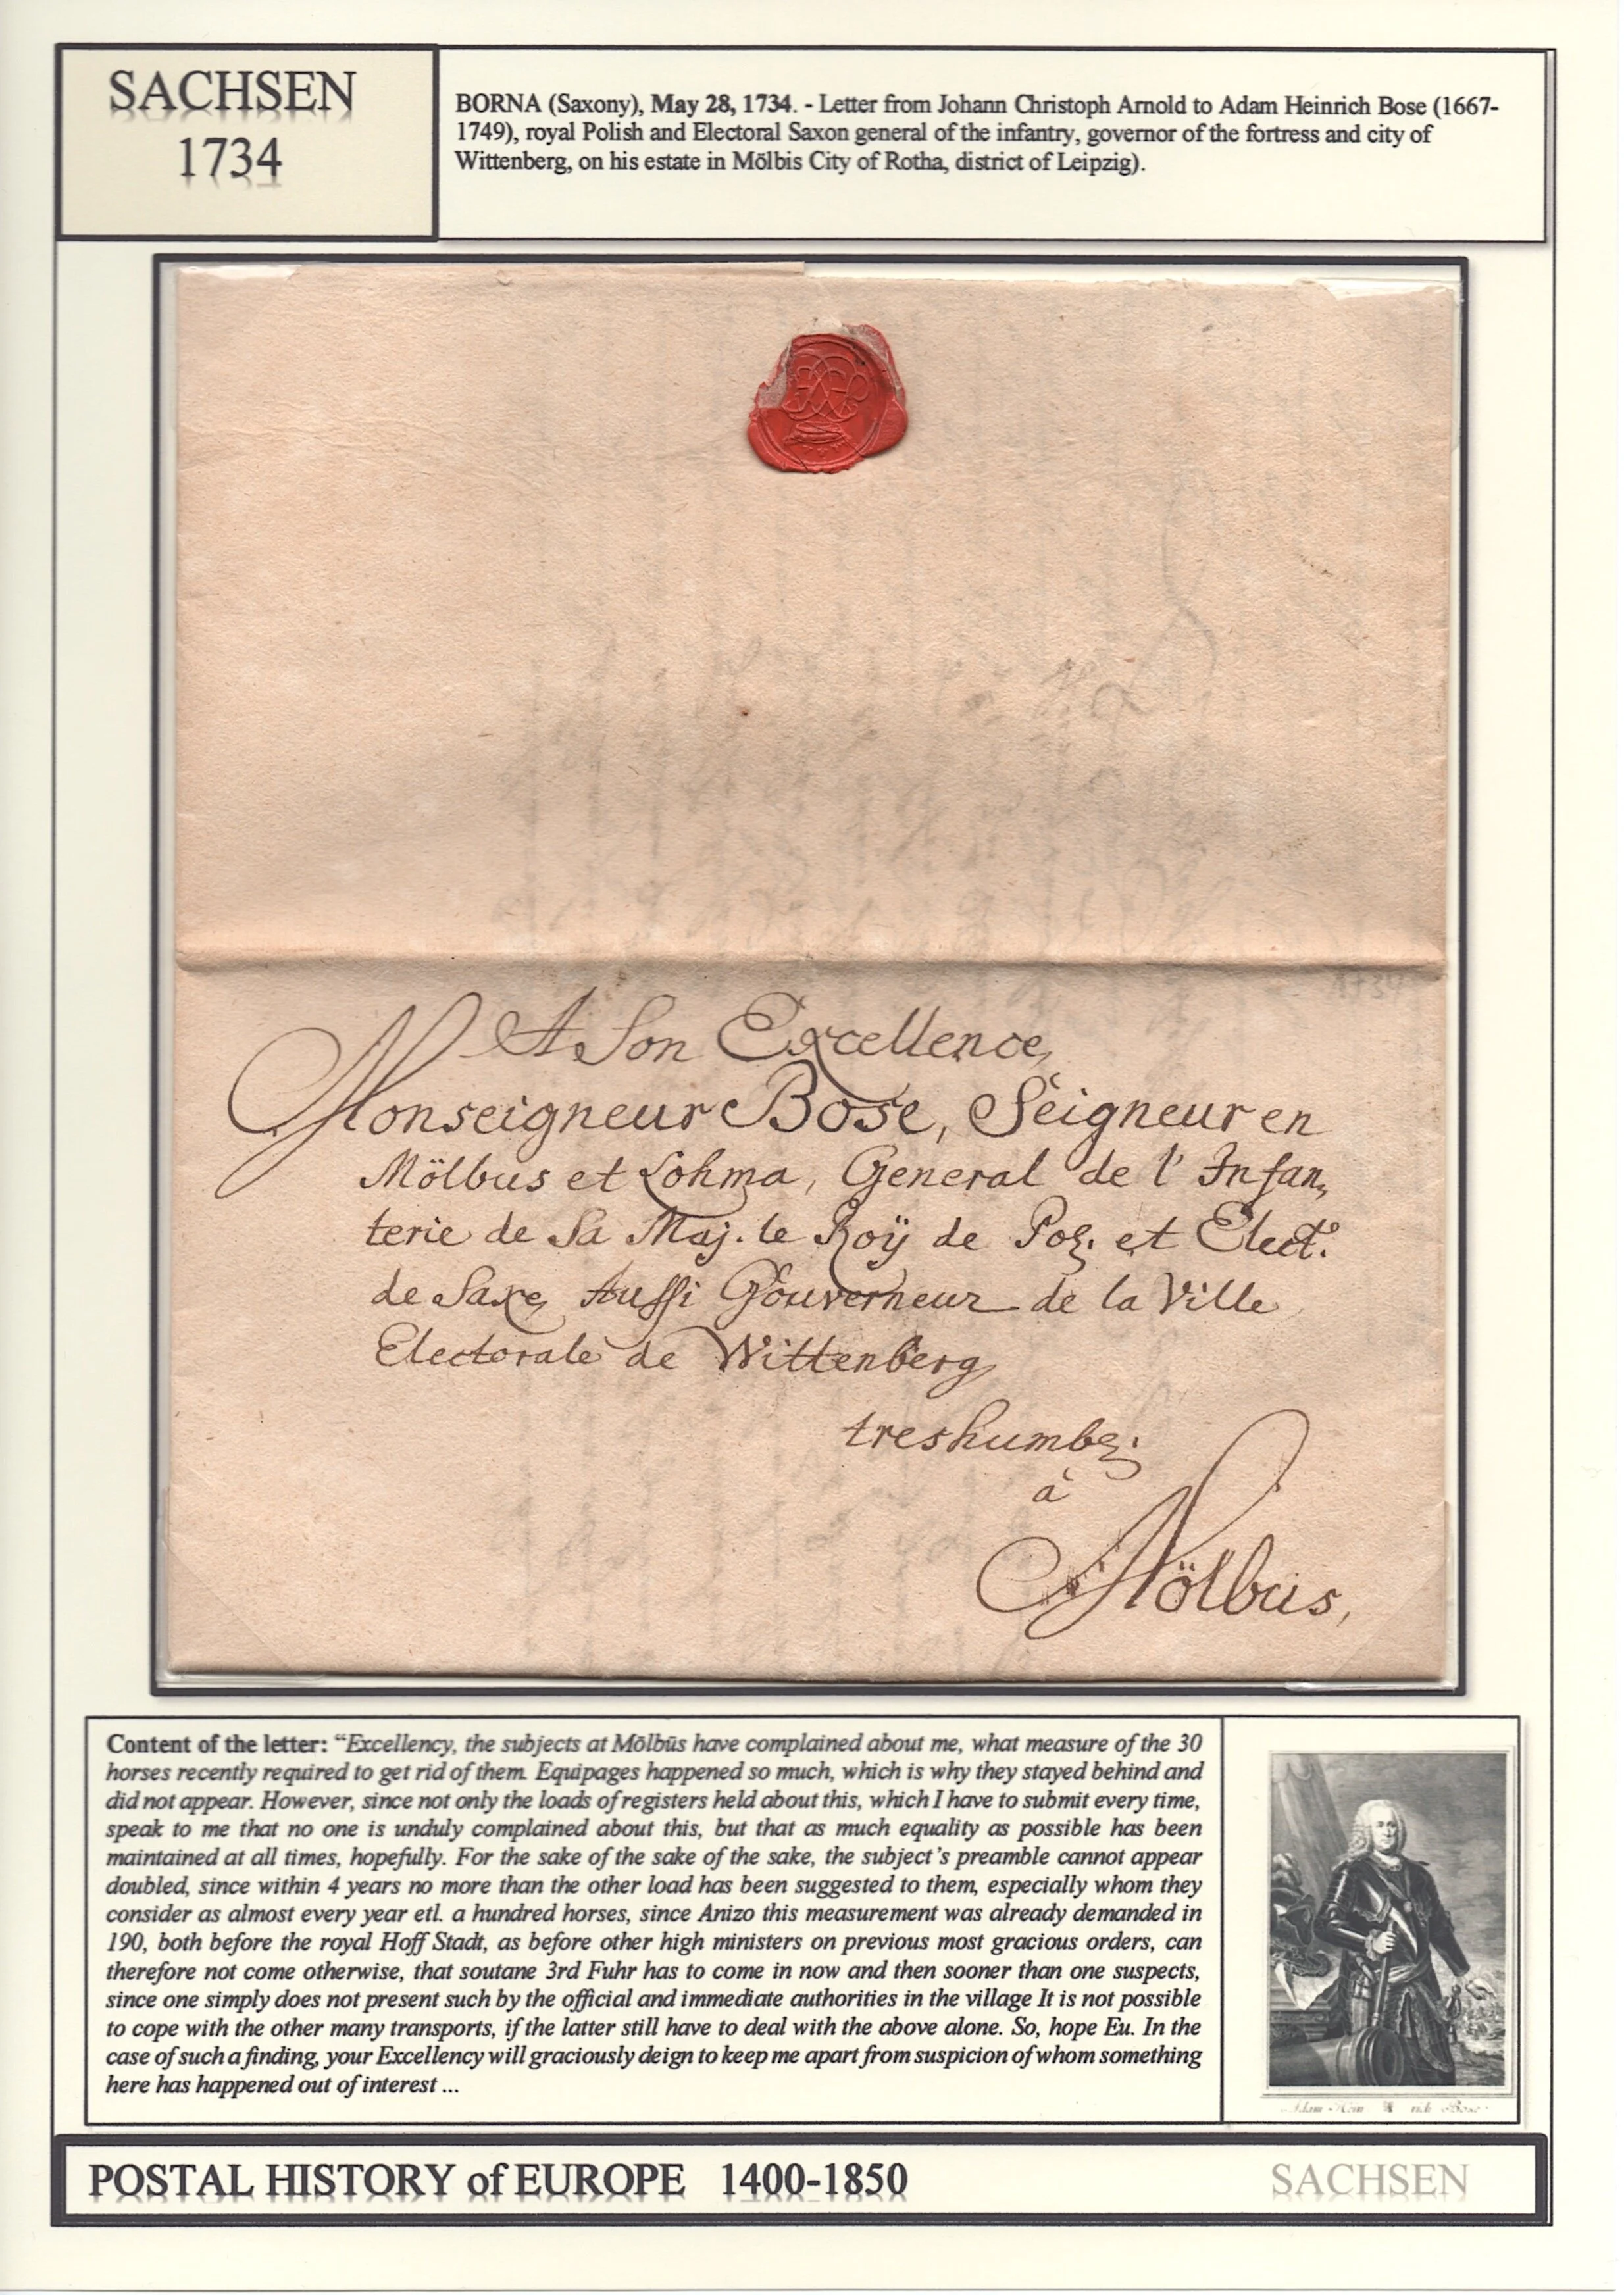 SACHSEN
1734
BORNA (Saxony), May 28, 1734. - Letter from Johann Christoph Arnold to Adam Heinrich Bose (1667-
1749), royal Polish and Electoral Saxon general of the infantry, governor of the fortress and city of
Wittenberg, on his estate in Mölbis City of Rotha, district of Leipzig).
1734
A Son Excellence,
Monseigneur Bose, Seigneur en
Mölbus et Lohma, General de l' Infan,
terie de Sa Maj. le Roÿ de Pol. et Elect.
de Saxe, Aussi Gouverneur de la Ville
Electorale de Wittenberg
treshumbl.
à
Mölbus,
Content of the letter: “Excellency, the subjects at Mölbüs have complained about me, what measure of the 30
horses recently required to get rid of them. Equipages happened so much, which is why they stayed behind and
did not appear. However, since not only the loads of registers held about this, which I have to submit every time,
speak to me that no one is unduly complained about this, but that as much equality as possible has been
maintained at all times, hopefully. For the sake of the sake of the sake, the subject’s preamble cannot appear
doubled, since within 4 years no more than the other load has been suggested to them, especially whom they
consider as almost every year etl. a hundred horses, since Anizo this measurement was already demanded in
190, both before the royal Hoff Stadt, as before other high ministers on previous most gracious orders, can
therefore not come otherwise, that soutane 3rd Fuhr has to come in now and then sooner than one suspects,
since one simply does not present such by the official and immediate authorities in the village It is not possible
to cope with the other many transports, if the latter still have to deal with the above alone. So, hope Eu. In the
case of such a finding, your Excellency will graciously deign to keep me apart from suspicion of whom something
here has happened out of interest ...
POSTAL HISTORY of EUROPE 1400-1850
SACHSEN